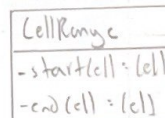 CellRange
-startCell : Cell
-endCell : Cell